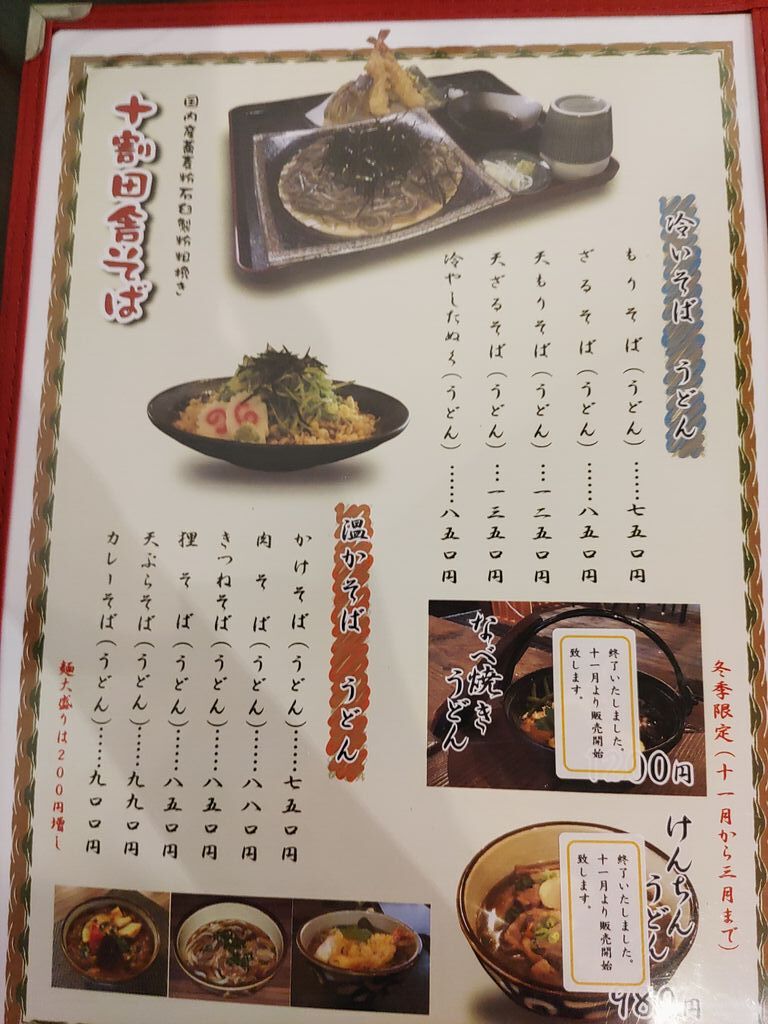 冷いそば うどん
もりそば(うどん)……七五〇円
ざるそば(うどん)……八五〇円
天もりそば(うどん)……一二五〇円
天ざるそば(うどん)……一三五〇円
冷やしたぬき(うどん)……八五〇円
国内産蕎麦粉石臼製粉粗挽き
十割田舎そば
温かそば うどん
かけそば(うどん)……七五〇円
肉そば(うどん)……八八〇円
きつねそば(うどん)……八五〇円
狸そば(うどん)……八五〇円
天ぷらそば(うどん)……九九〇円
カレーそば(うどん)……九〇〇円
麺大盛りは200円増し
冬季限定(十一月から三月まで)
なべ焼きうどん
終了いたしました。
十一月より販売開始
致します。
00円
けんちんうどん
終了いたしました。
十一月より販売開始
致します。
980円